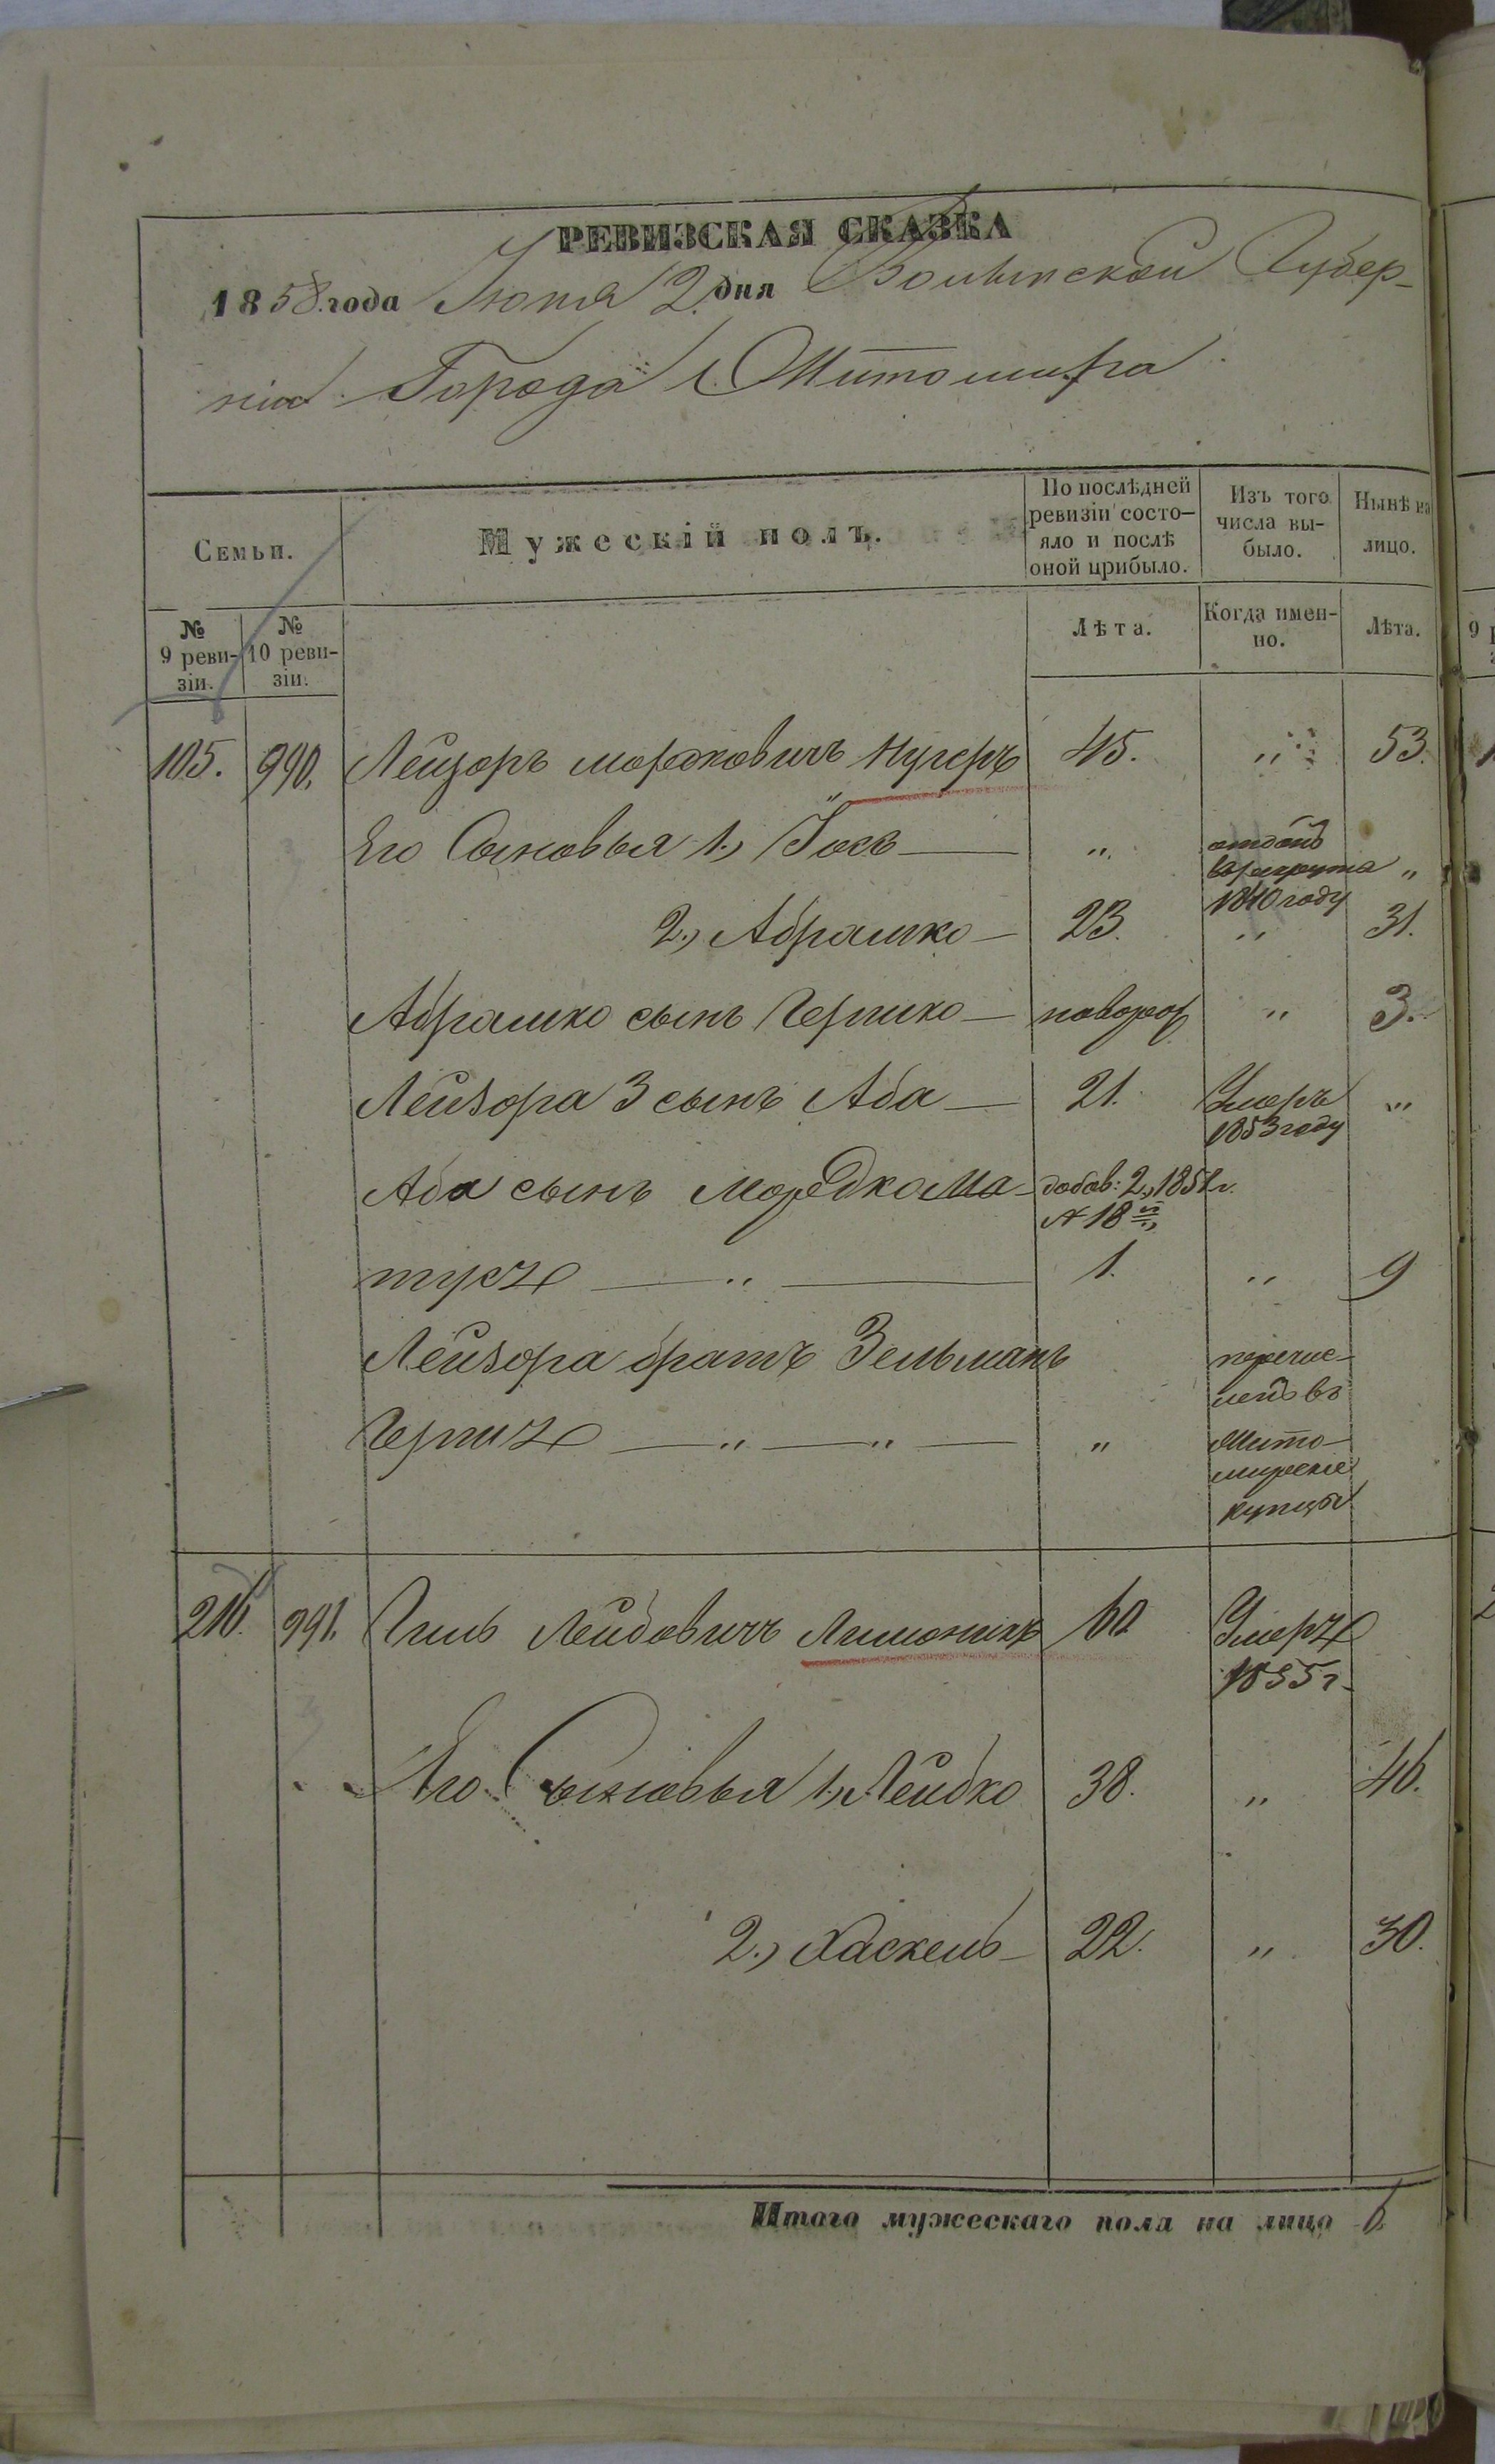 РЕВИЗСКАЯ СКАЗКА
1858 года Іюня 2. дня Волынской Губер-
ніи Города Житомира
Семьи.
Мужескій полъ.
По послѣдней ревизіи состо-яло и послѣ оной прибыло.
Изъ того числа вы-было.
Нынѣ на лицо.
№ 9 реви-зіи.
№ 10 реви-зіи.
Лѣта.
Когда имен-но.
Лѣта.
105. 990. Лейзоръ Мордковичъ 45. „ 53.
Его Сыновья 1., Іось — „ отданъ в рекрута 1840 году „
2., Абрашко — 23. „ 31.
Абрашко сынъ Гершко — новорож „ 3.
Лейзора 3 сынъ Аба — 21. Умеръ 1853 году „
Аба сынъ Мордко Ма- добав: 2., 1851 г. № 18
тусъ — „ — 1. „ 9
Лейзора братъ Зельманъ перечис-
ленъ въ
Гершъ — „ — „ — „ Жито-
мирскіе
купцы
216. 991. Гиль Лейбовичъ Лимоникъ 60 Умеръ
1855 г.
Его Сыновья 1., Лейбко 38. „ 46.
2., Хаскель — 22. „ 30.
Итого мужескаго пола на лицо 6